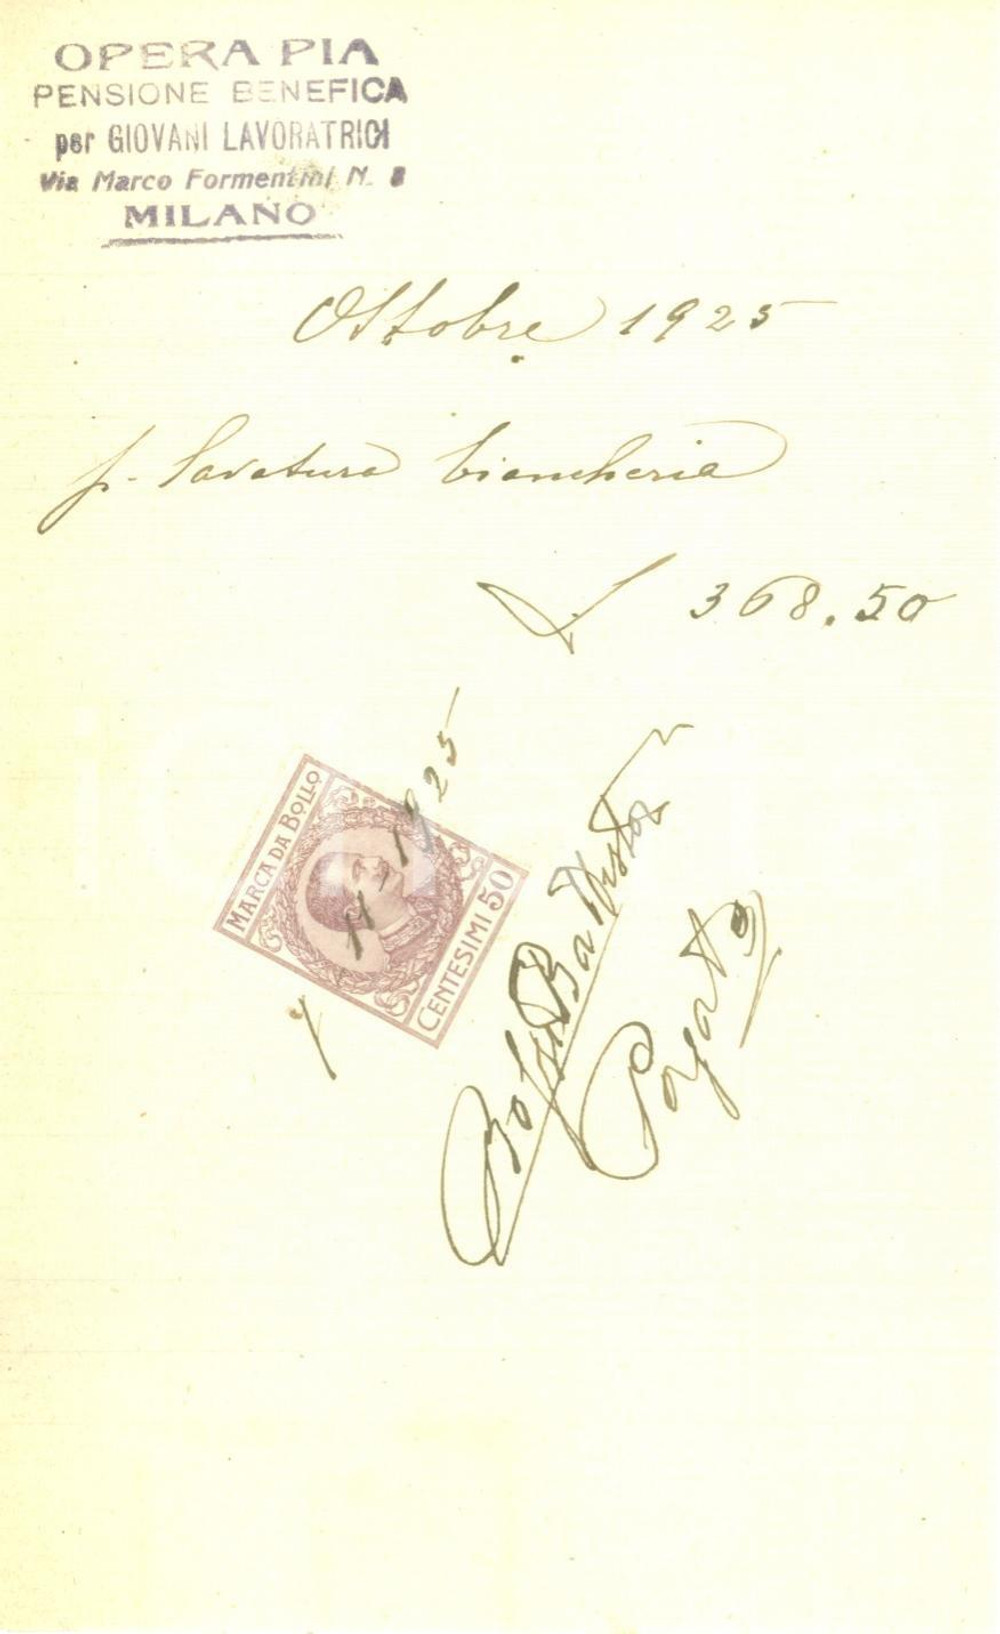 OPERA PIA
PENSIONE BENEFICA
per GIOVANI LAVORATRICI
Via Marco Formentini N. 8
MILANO
Ottobre 1925
p. lavatura biancheria
L 368.50
MARCA DA BOLLO
CENTESIMI 50
11 1925
Battista
Pagato